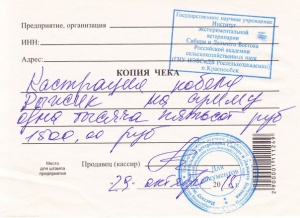 Государственное научное учреждение
Институт
экспериментальной
ветеринарии
Сибири и Дальнего Востока
Российской академии
сельскохозяйственных наук
(ГНУ ИЭВСиДВ Россельхозакадемии)
п. Краснообск
Предприятие, организация
ИНН:
Адрес:
КОПИЯ ЧЕКА
Кастрация кобеля
Рыжик на сумму
одна тысяча пятьсот руб
1500,00 руб
Место
для штампа
предприятия
Продавец (кассир)
Для
документов
29 октября 20